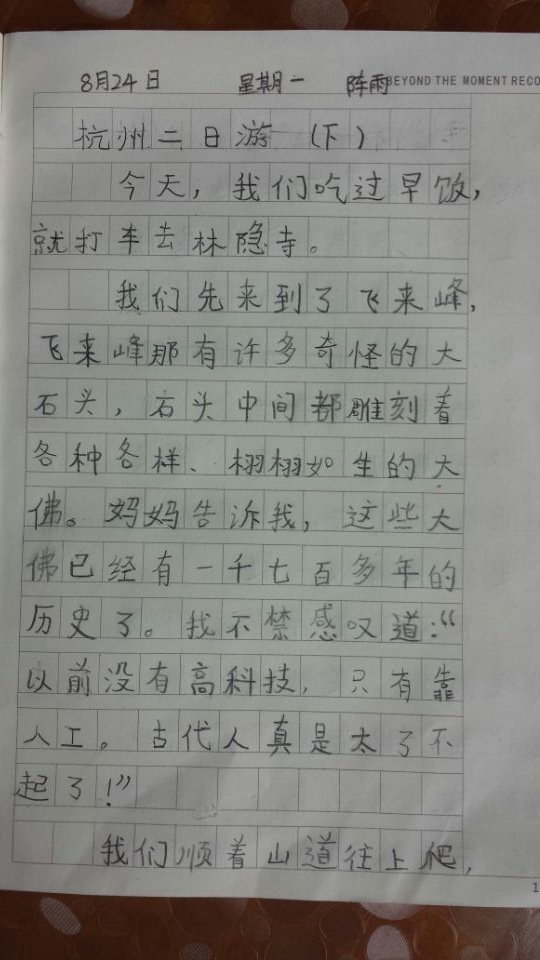 8月24日 星期一 阵雨 BEYOND THE MOMENT RECO
杭州二日游（下）
今天，我们吃过早饭，
就打车去林隐寺。
我们先来到了飞来峰，
飞来峰那有许多奇怪的大
石头，石头中间都雕刻着
各种各样、栩栩如生的大
佛。妈妈告诉我，这些大
佛已经有一千七百多年的
历史了。我不禁感叹道：“
以前没有高科技，只有靠
人工。古代人真是太了不
起了！”
我们顺着山道往上爬，
1